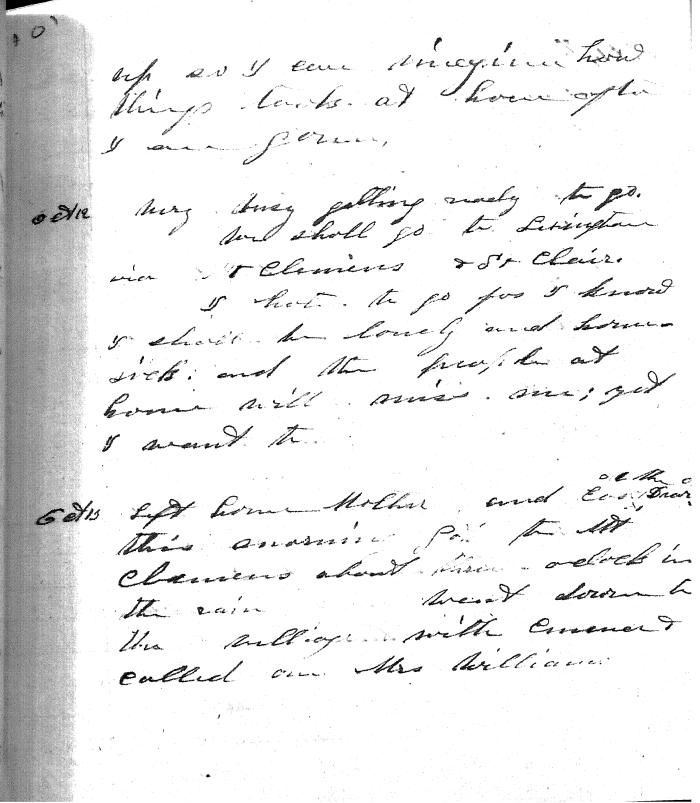 up so I can imagine how
things look at home after
I am gone,
Oct 12 Very busy getting ready to go.
We shall go to Lexington
via Mt Clemens & St Clair.
I hate to go for I know
I shall be lonely and home
sick. and the people at
home will miss me; yet
I want to
Oct 13 Left home Mother and
this morning Got to Mt
Clemens about o clock in
the rain went down to
the village with Emma &
called on Mrs Williams